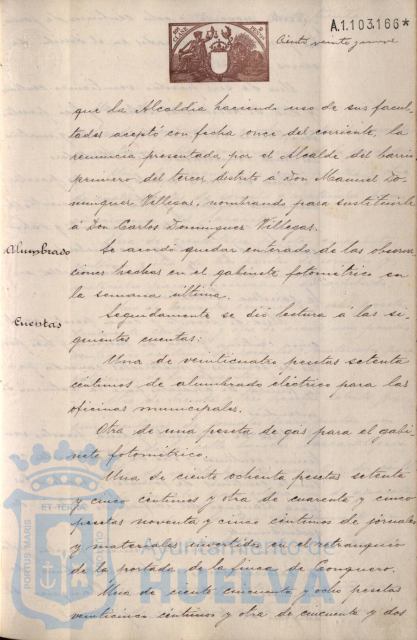 A.1.103.166*
Ciento veinte y nueve
que la Alcaldía haciendo uso de sus facul-
tades aceptó con fecha once del corriente, la
renuncia presentada por el Alcalde del barrio
primero del tercer distrito á Don Manuel Do-
minguez Villegas, nombrando para sustituirle
á Don Carlos Dominguez Villegas.
Alumbrado
Se acordó quedar enterado de las observa-
ciones hechas en el gabinete fotométrico en
la semana última.
Cuentas
Seguidamente se dió lectura á las si-
guientes cuentas:
Una de veinticuatro pesetas setenta
céntimos de alumbrado eléctrico para las
oficinas municipales.
Otra de una peseta de gas para el gabi-
nete fotométrico.
Una de ciento ochenta pesetas setenta
y cinco céntimos y otra de cuarenta y cinco
pesetas noventa y cinco céntimos de jornales
y materiales invertidos en el retranqueo
de la portada de la finca de Conquero.
Una de ciento cincuenta y ocho pesetas
veinticinco céntimos y otra de cincuenta y dos
PORTUS MARIS
ET TERRAE
Ayuntamiento de
HUELVA